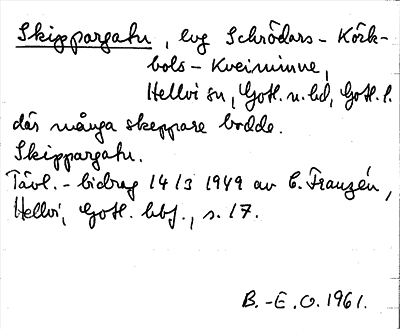 Skippargatu, lvg Schrödars - Körk-
bols - Kveiminne,
Hellvi sn, Gotl. n. hd, Gotl. l.
där många skeppare bodde.
Skippargatu.
Tävl.-bidrag 14/3 1949 av C. Franzén,
Hellvi, Gotl. bbf., s. 17.
B.-E.O. 1961.